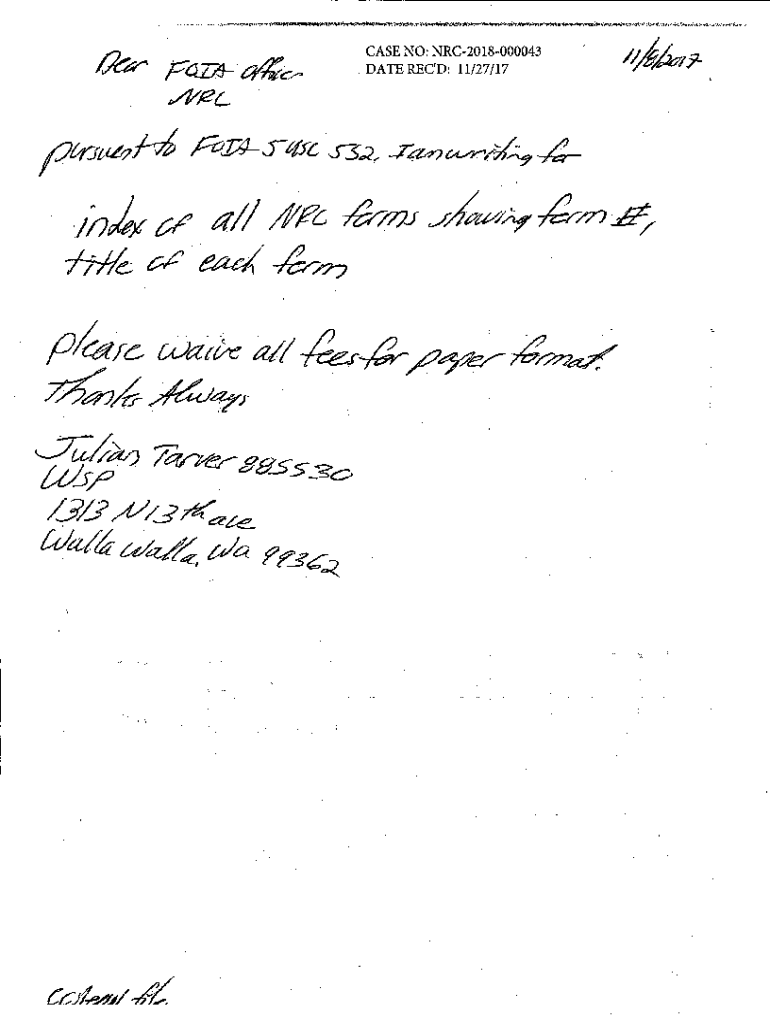 CASE NO: NRC-2018-000043
DATE REC'D: 11/27/17
11/8/2017
Dear FOIA Office
NRC
pursuent to FOIA 5 USC 532, I am writing for
index of all NRC forms showing form #,
title of each form
please waive all fees for paper format.
Thanks Always
Julian Tarver 885530
WSP
1313 N 13th ave
Walla Walla, Wa 99362
file.